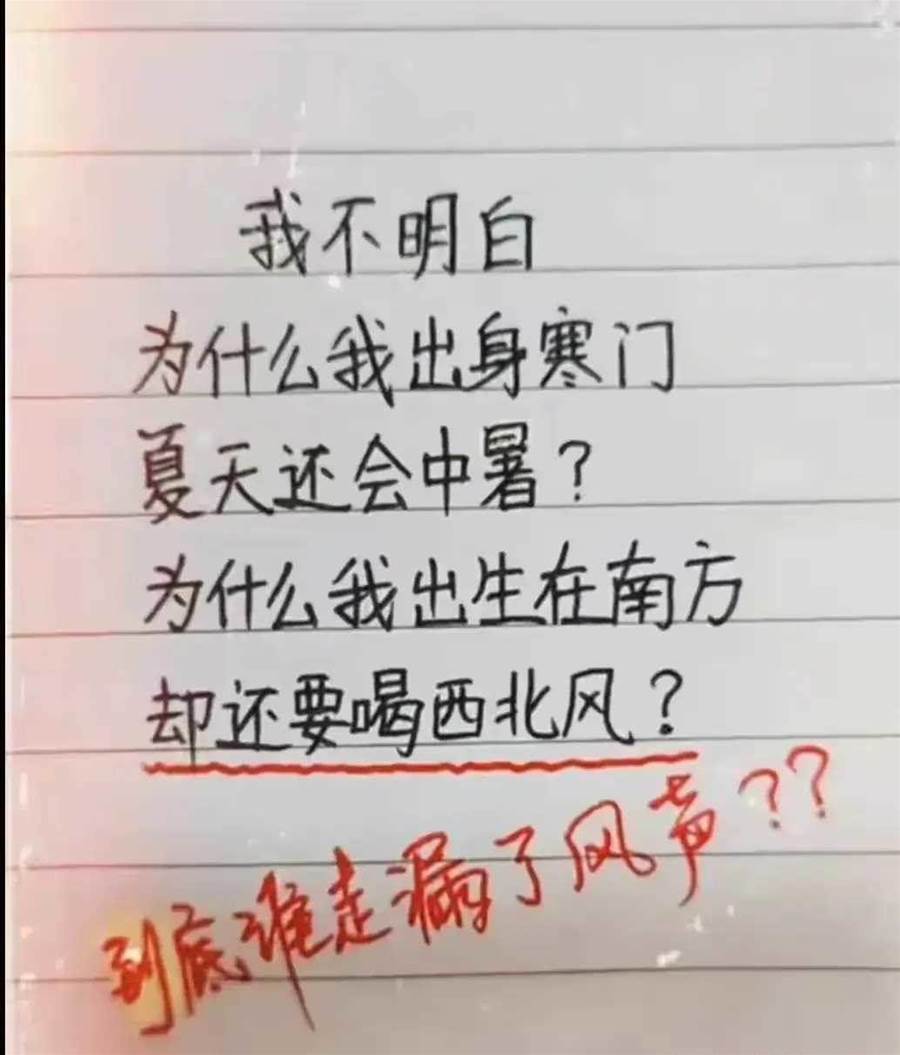 我不明白
为什么我出身寒门
夏天还会中暑?
为什么我出生在南方
却还要喝西北风?
到底谁走漏了风声??